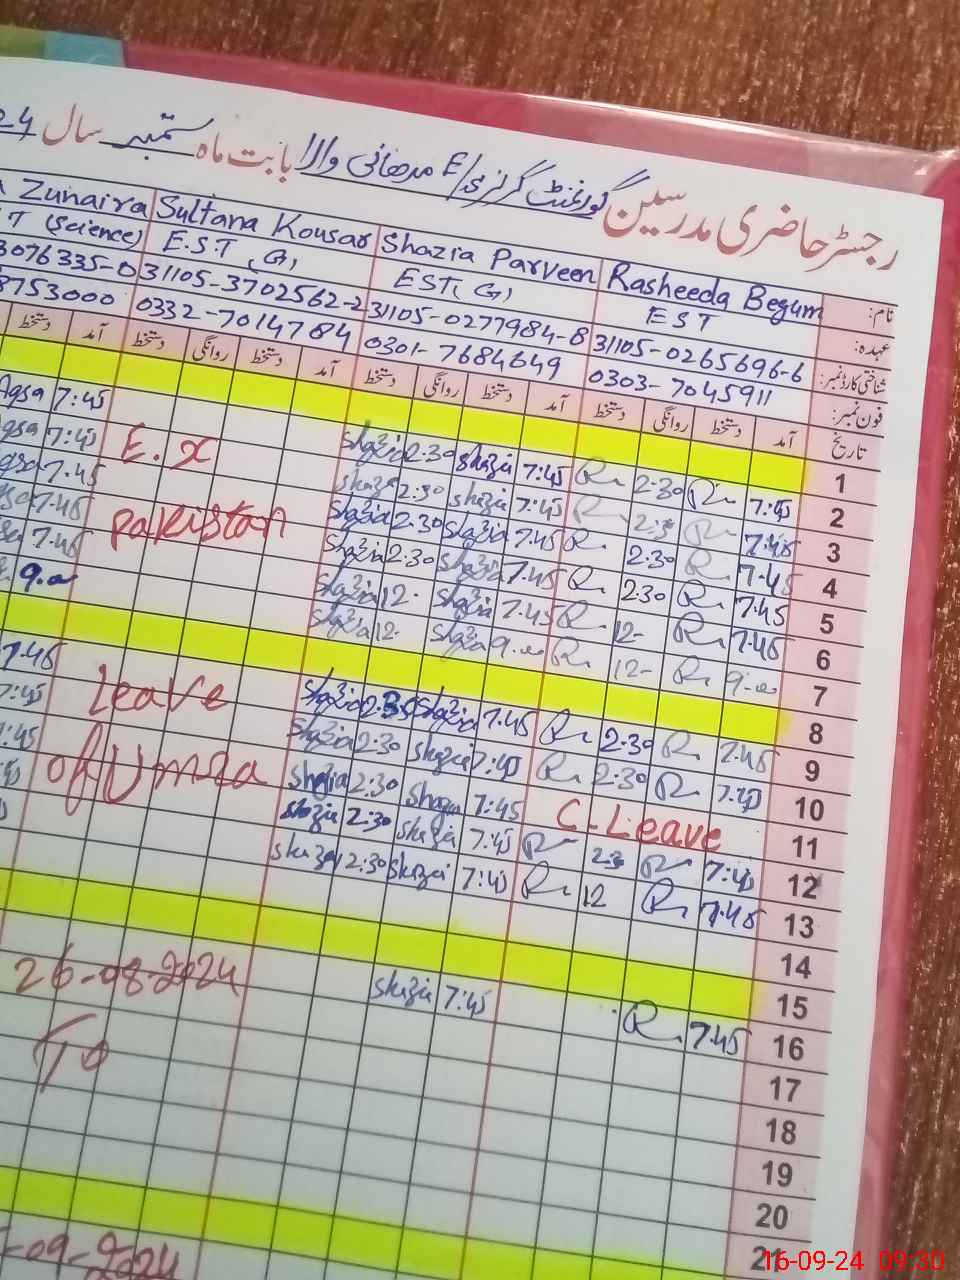 رجسٹر حاضری مدرسین گورنمنٹ گرلز ای/E مدھانی والا بابت ماہ ستمبر سال
نام: Rasheeda Begum Shazia Parveen Sultana Kousar Zunaira
عہدہ: EST EST(G) E.S.T (G) (Science)
شناختی کارڈ نمبر: 31105-0265696-6 31105-0277984-8 31105-3702562-2 3076335-0
فون نمبر: 0303-7045911 0301-7684649 0332-7014784 8753000
تاریخ آمد دستخط روانگی دستخط آمد دستخط روانگی دستخط آمد دستخط روانگی دستخط آمد دستخط
1
2 7:45 R 2:30 R 7:45 shazia 2:30 shazia E.X 7:45 Aqsa
3 7:45 R 2:3 R 7:45 shazia 2:30 shazia 7:45 Aqsa
4 7.45 R 2:30 R 7:45 shazia 2:30 shazia Pakistan 7.45
5 7.45 R 2:30 R 7.45 shazia 2:30 shazia 7.45
6 7.45 R 12- R 7.45 shazia 12- shazia 7.45
7 9.00 R 12- R 9.00 shazia 12- shazia 9.00
8
9 7.45 R 2:30 R 7.45 shazia 2:35 shazia Leave 7.45
10 7:45 R 2:30 R 7:45 shazia 2:30 shazia 7:45
11 C-Leave 7:45 shazia 2:30 shazia of Umra 7:45
12 7:45 R 2:3 R 7:45 shazia 2:30 shazia
13 7.45 R 12 R 7:45 shazia 2:30 shazia
14
15
16 7.45 R 7:45 shazia 26-08-2024
17
18 To
19
20
21
-09-2024
16-09-24 09:30